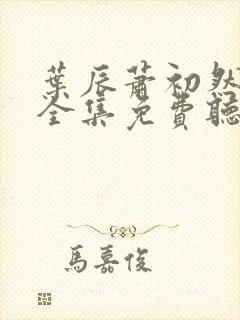 葉辰蕭初然
全集免費聽
馬嘉俊